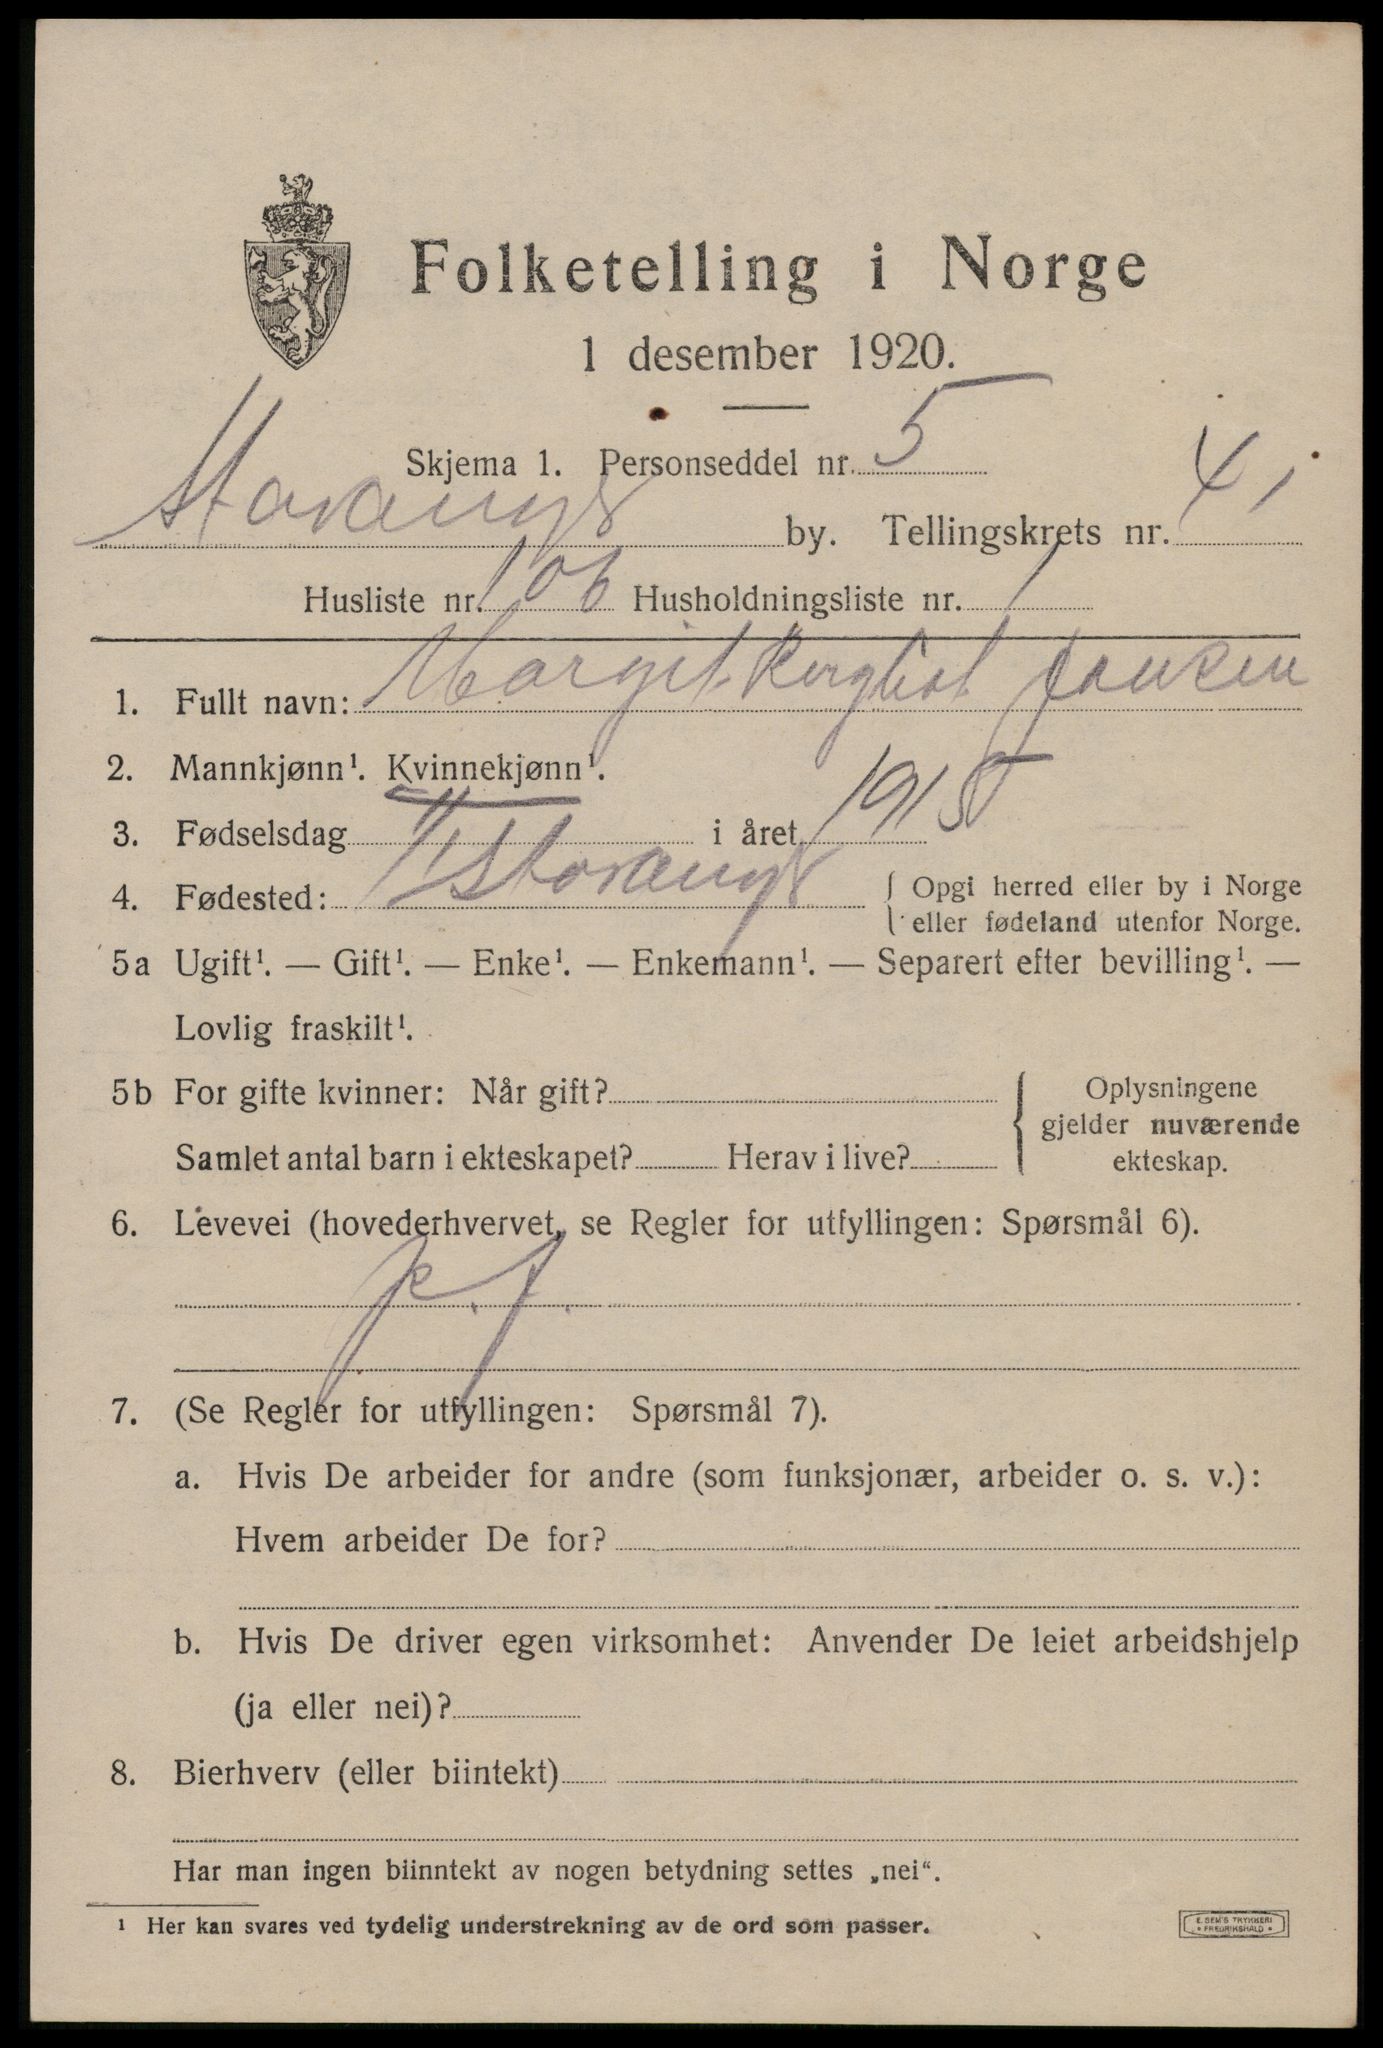 Folketelling i Norge
1 desember 1920.
Skjema 1. Personseddel nr. 5
Stavanger by. Tellingskrets nr. 41
Husliste nr. 106 Husholdningsliste nr. 1
1. Fullt navn: Margit Jansen
2. Mannkjønn¹. Kvinnekjønn¹.
3. Fødselsdag 1/1 i året 1915
4. Fødested: Stavanger { Opgi herred eller by i Norge
eller fødeland utenfor Norge.
5a Ugift¹. — Gift¹. — Enke¹. — Enkemann¹. — Separert efter bevilling¹. —
Lovlig fraskilt¹.
5b For gifte kvinner: Når gift? { Oplysningene
gjelder nuværende
Samlet antal barn i ekteskapet? Herav i live? ekteskap.
6. Levevei (hovederhvervet, se Regler for utfyllingen: Spørsmål 6).
7. (Se Regler for utfyllingen: Spørsmål 7).
a. Hvis De arbeider for andre (som funksjonær, arbeider o. s. v.):
Hvem arbeider De for?
b. Hvis De driver egen virksomhet: Anvender De leiet arbeidshjelp
(ja eller nei)?
8. Bierhverv (eller biintekt)
Har man ingen biinntekt av nogen betydning settes „nei“.
¹ Her kan svares ved tydelig understrekning av de ord som passer.
E. SEM'S TRYKKERI
• FREDRIKSHALD •